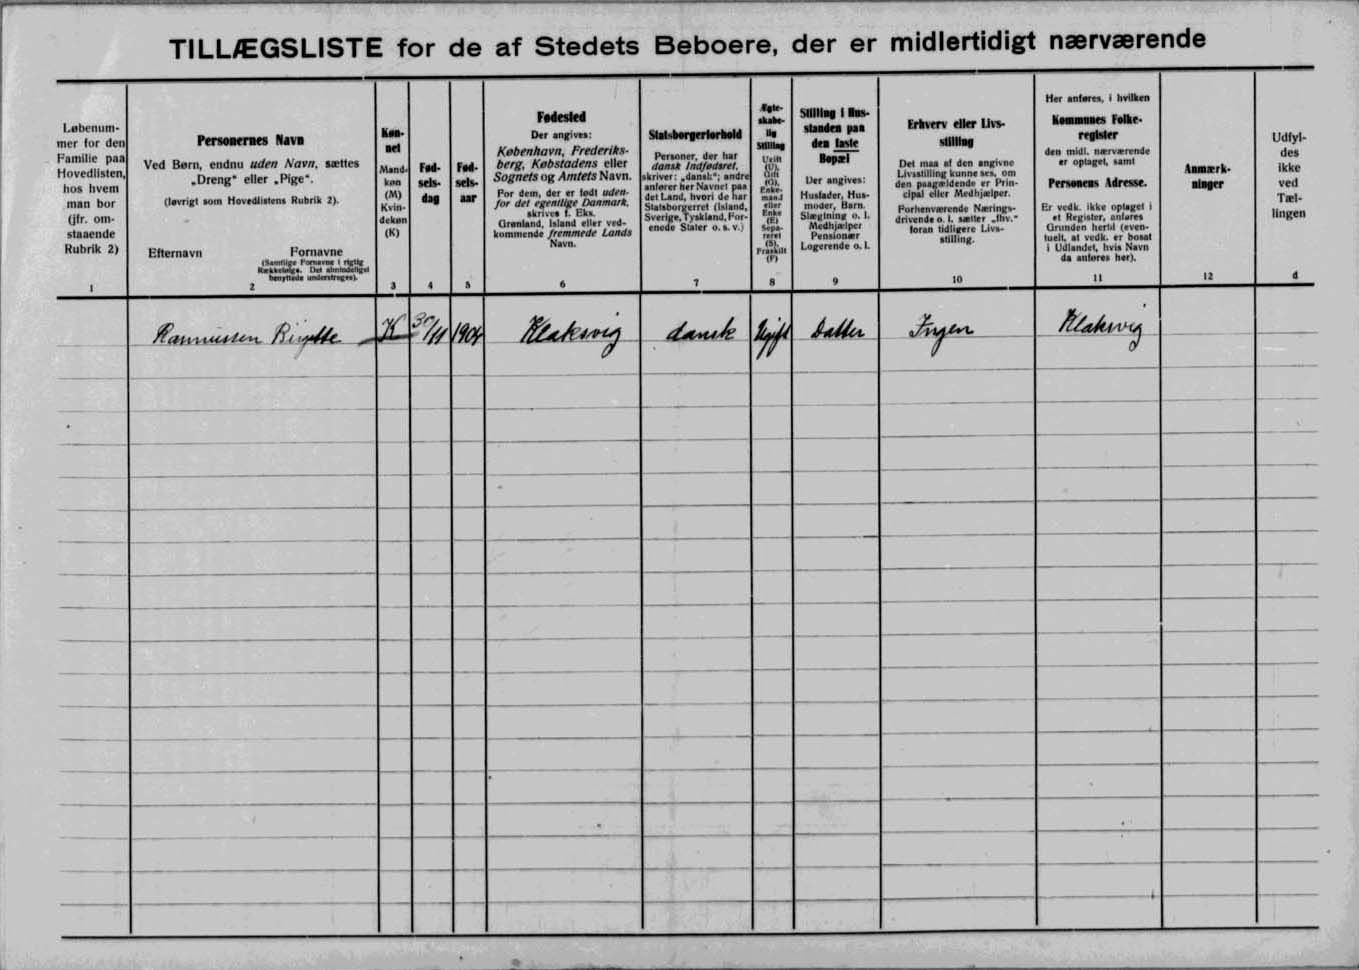 TILLÆGSLISTE for de af Stedets Beboere, der er midlertidigt nærværende
Løbenum-
mer for den
Familie paa
Hovedlisten,
hos hvem
man bor
(jfr. om-
staaende
Rubrik 2)
1
Personernes Navn
Ved Børn, endnu uden Navn, sættes
„Dreng“ eller „Pige“.
(Iøvrigt som Hovedlistens Rubrik 2).
Efternavn Fornavne
(Samtlige Fornavne i rigtig
Rækkefølge. Det almindeligst
benyttede understreges).
2
Køn-
net
Mand-
køn
(M)
Kvin-
dekøn
(K)
3
Fød-
sels-
dag
4
Fød-
sels-
aar
5
Fødested
Der angives:
København, Frederiks-
berg, Købstadens eller
Sognets og Amtets Navn.
For dem, der er født uden-
for det egentlige Danmark,
skrives f. Eks.
Grønland, Island eller ved-
kommende fremmede Lands
Navn.
6
Statsborgerforhold
Personer, der har
dansk Indfødsret,
skriver: „dansk“; andre
anfører her Navnet paa
det Land, hvori de har
Statsborgerret (Island,
Sverige, Tyskland, For-
enede Stater o. s. v.)
7
Ægte-
skabe-
lig
Stilling
Ugift
(U),
Gift
(G),
Enke-
mand
eller
Enke
(E)
Sepa-
reret
(S),
Fraskilt
(F)
8
Stilling i Hus-
standen paa
den faste
Bopæl
Der angives:
Husfader, Hus-
moder, Barn,
Slægtning o. l.
Medhjælper
Pensionær
Logerende o. l.
9
Erhverv eller Livs-
stilling
Det maa af den angivne
Livsstilling kunne ses, om
den paagældende er Prin-
cipal eller Medhjælper.
Forhenværende Nærings-
drivende o. l. sætter „fhv.“
foran tidligere Livs-
stilling.
10
Her anføres, i hvilken
Kommunes Folke-
register
den midl. nærværende
er optaget, samt
Personens Adresse.
Er vedk. ikke optaget i
et Register, anføres
Grunden hertil (even-
tuelt, at vedk. er bosat
i Udlandet, hvis Navn
da anføres her).
11
Anmærk-
ninger
12
Udfyl-
des
ikke
ved
Tæl-
lingen
d
Rasmussen Birgitte K 30/11 1904 Klaksvig dansk Ugift Datter Ingen Klaksvig